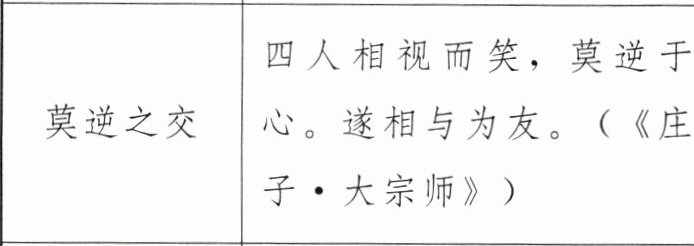 莫逆之交
四人相视而笑，莫逆于
心。遂相与为友。（《庄
子·大宗师》）